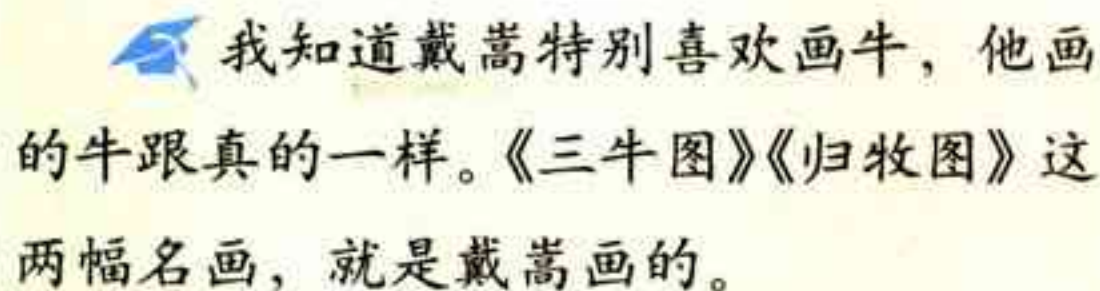 我知道戴嵩特别喜欢画牛，他画
的牛跟真的一样。《三牛图》《归牧图》这
两幅名画，就是戴嵩画的。